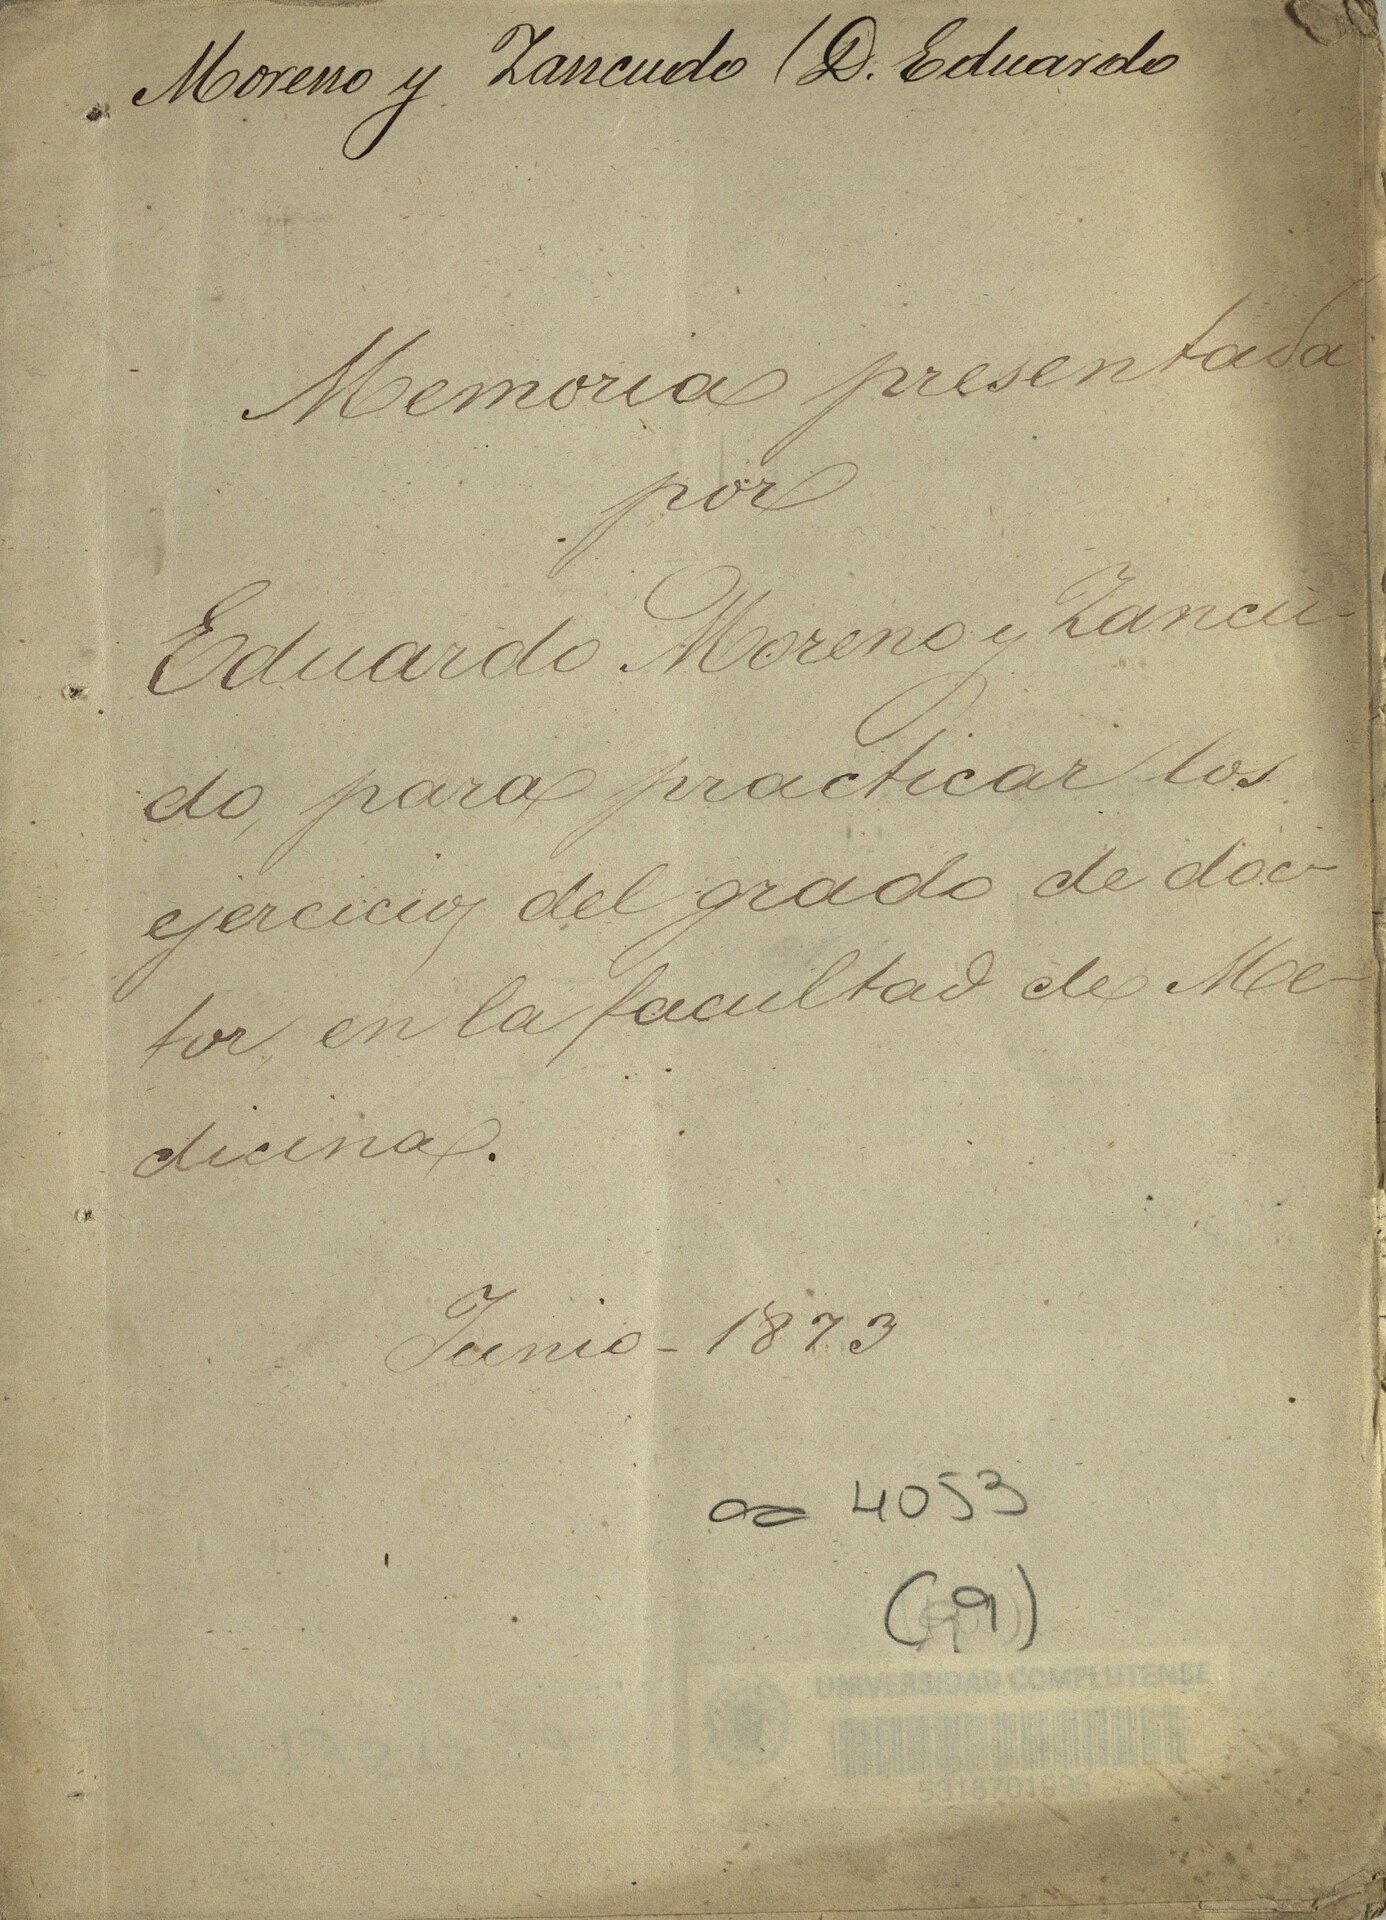 Moreno y Zancudo (D. Eduardo
Memoria presentada
por
Eduardo Moreno y Zancu-
do, para practicar los
ejercicios del grado de doc-
tor, en la facultad de Me-
dicina.
Junio - 1873
4053
(99)
UNIVERSIDAD COMPLUTENSE